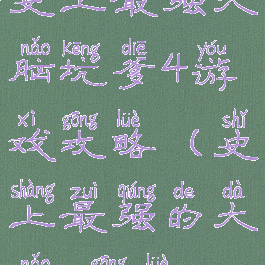 史上最强大
nǎo kēng diē yóu
脑坑爹4游
xì gōng lüè shǐ
戏攻略(史
shàng zuì qiáng de dà
上最强的大
nǎo gōng lüè